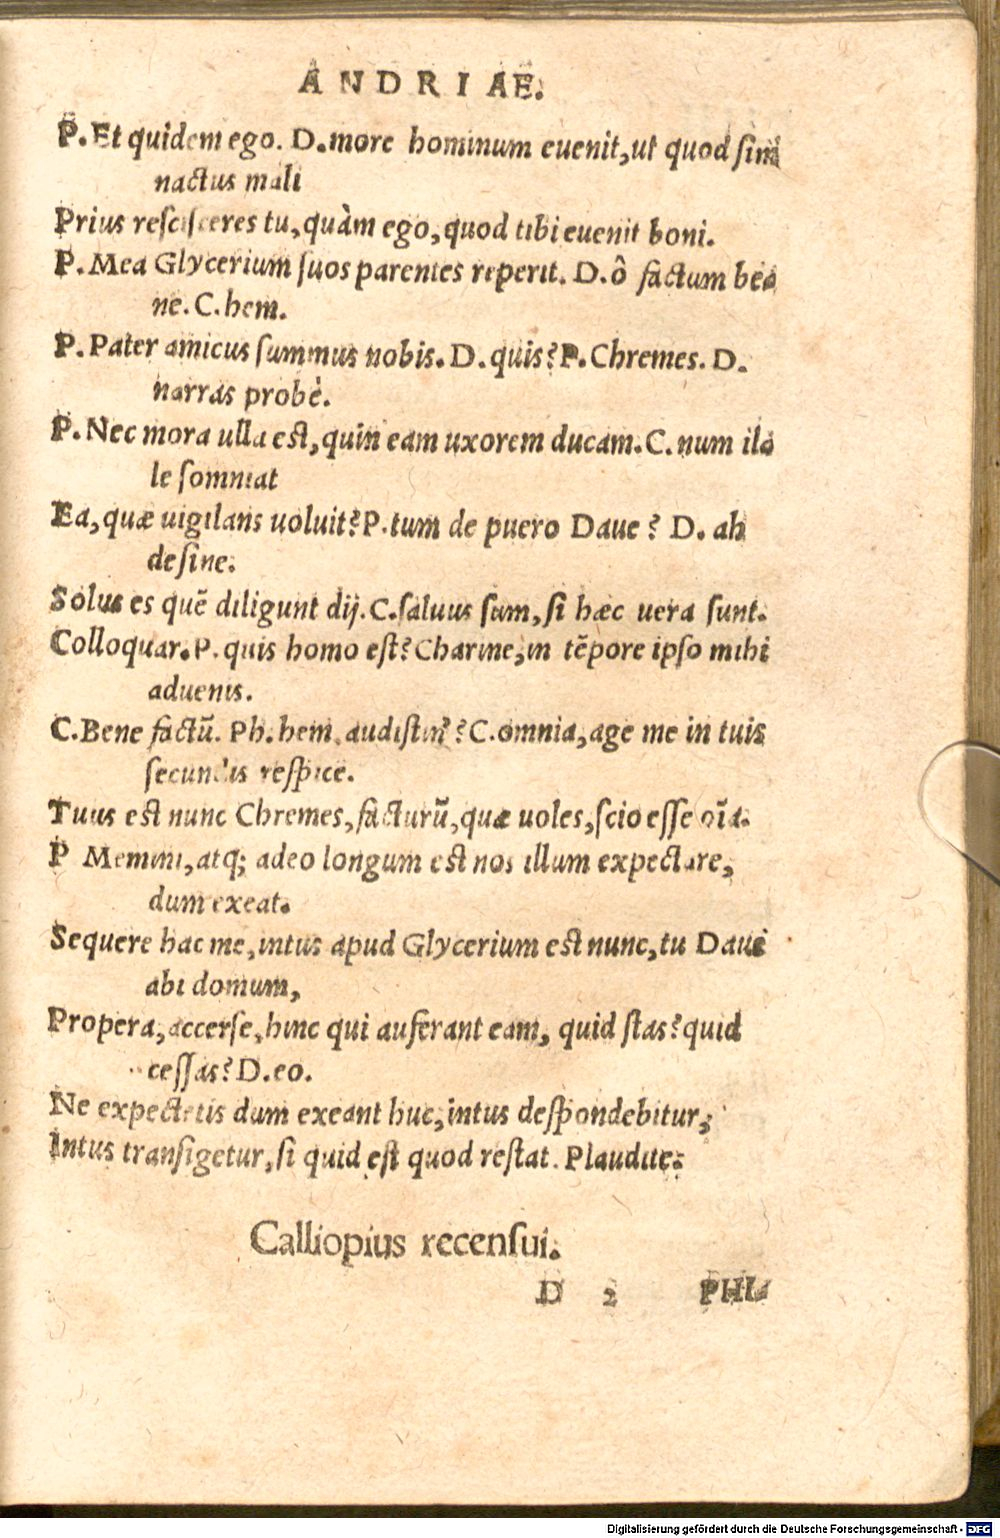 ANDRIAE.
P. Et quidem ego. D. more hominum euenit, ut quod sim
nactus mali
Prius rescisceres tu, quàm ego, quod tibi euenit boni.
P. Mea Glycerium suos parentes reperit. D. ô factum be-
ne. C. hem.
P. Pater amicus summus nobis. D. quis? P. Chremes. D.
narras probè.
P. Nec mora ulla est, quin eam uxorem ducam. C. num il-
le somniat
Ea, quæ uigilans uoluit? P. tum de puero Daue? D. ah
desine.
Solus es quẽ diligunt dij. C. saluus sum, si hæc uera sunt.
Colloquar. P. quis homo est? Charine, in tẽpore ipso mihi
aduenis.
C. Bene factũ. Ph. hem, audistin'? C. omnia, age me in tuis
secundis respice.
Tuus est nunc Chremes, facturũ, quæ uoles, scio esse oĩa.
P Memini, atq; adeo longum est nos illum expectare,
dum exeat.
Sequere hac me, intus apud Glycerium est nunc, tu Daue
abi domum,
Propera, accerse, hinc qui auferant eam, quid stas? quid
cessas? D. eo.
Ne expectetis dum exeant huc, intus despondebitur,
Intus transigetur, si quid est quod restat. Plaudite.
Calliopius recensui.
D 2 PHI-
Digitalisierung gefördert durch die Deutsche Forschungsgemeinschaft - DFG